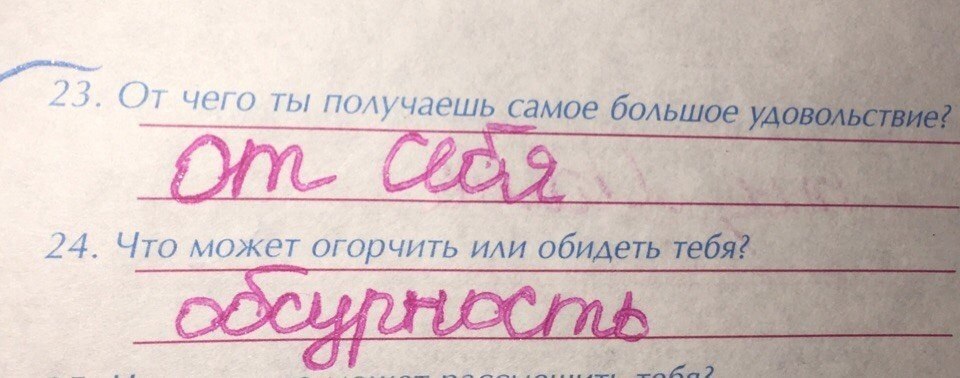 23. От чего ты получаешь самое большое удовольствие?
от себя
24. Что может огорчить или обидеть тебя?
обсурность
рассмешить тебя?